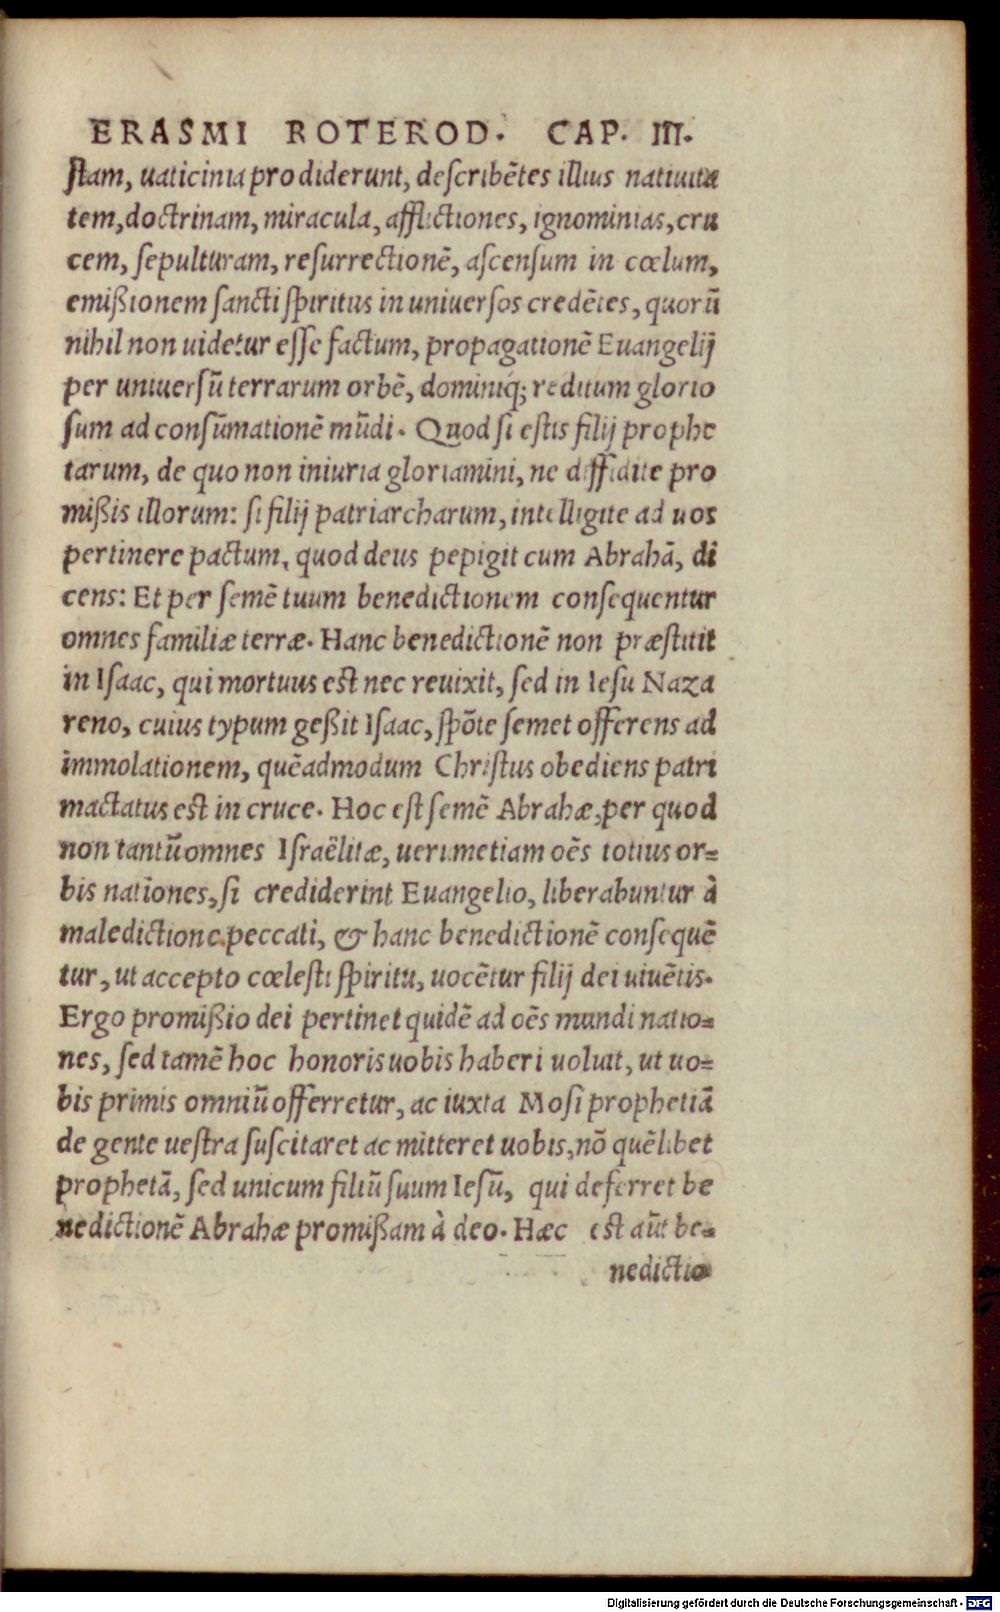 ERASMI ROTEROD. CAP. III.
stam, uaticinia prodiderunt, describẽtes illius natiuita
tem, doctrinam, miracula, afflictiones, ignominias, cru
cem, sepulturam, resurrectionẽ, ascensum in cœlum,
emißionem sancti spiritus in uniuersos credẽtes, quorũ
nihil non uidetur esse factum, propagationẽ Euangelij
per uniuersũ terrarum orbẽ, dominiq; reditum glorio
sum ad consũmationẽ mũdi. Quod si estis filij prophe
tarum, de quo non iniuria gloriamini, ne diffidite pro
mißis illorum: si filij patriarcharum, intelligite ad uos
pertinere pactum, quod deus pepigit cum Abrahã, di
cens: Et per semẽ tuum benedictionem consequentur
omnes familiæ terræ. Hanc benedictionẽ non præstitit
in Isaac, qui mortuus est nec reuixit, sed in Iesu Naza
reno, cuius typum geßit Isaac, spõte semet offerens ad
immolationem, quẽadmodum Christus obediens patri
mactatus est in cruce. Hoc est semẽ Abrahæ, per quod
non tantũ omnes Israëlitæ, uerumetiam oẽs totius or=
bis nationes, si crediderint Euangelio, liberabuntur à
maledictione peccati, & hanc benedictionẽ consequẽ
tur, ut accepto cœlesti spiritu, uocẽtur filij dei uiuẽtis.
Ergo promißio dei pertinet quidẽ ad oẽs mundi natio=
nes, sed tamẽ hoc honoris uobis haberi uoluit, ut uo=
bis primis omniũ offerretur, ac iuxta Mosi prophetiã
de gente uestra suscitaret ac mitteret uobis, nõ quẽlibet
prophetã, sed unicum filiũ suum Iesũ, qui deferret be
nedictionẽ Abrahæ promißam à deo. Hæc est aũt be=
nedictio
Digitalisierung gefördert durch die Deutsche Forschungsgemeinschaft - DFG